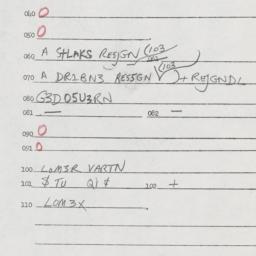 040 0
050 0
060 A STLAKS RESIGN (103
070 A DR1BN3 RESSGN (103) + REJGNDL
080 G3D05U3RN
081 — 082 —
090 0
091 0
100 LOM3R VARTN
102 $ TU Q1 $ 100 +
110 LOM3X